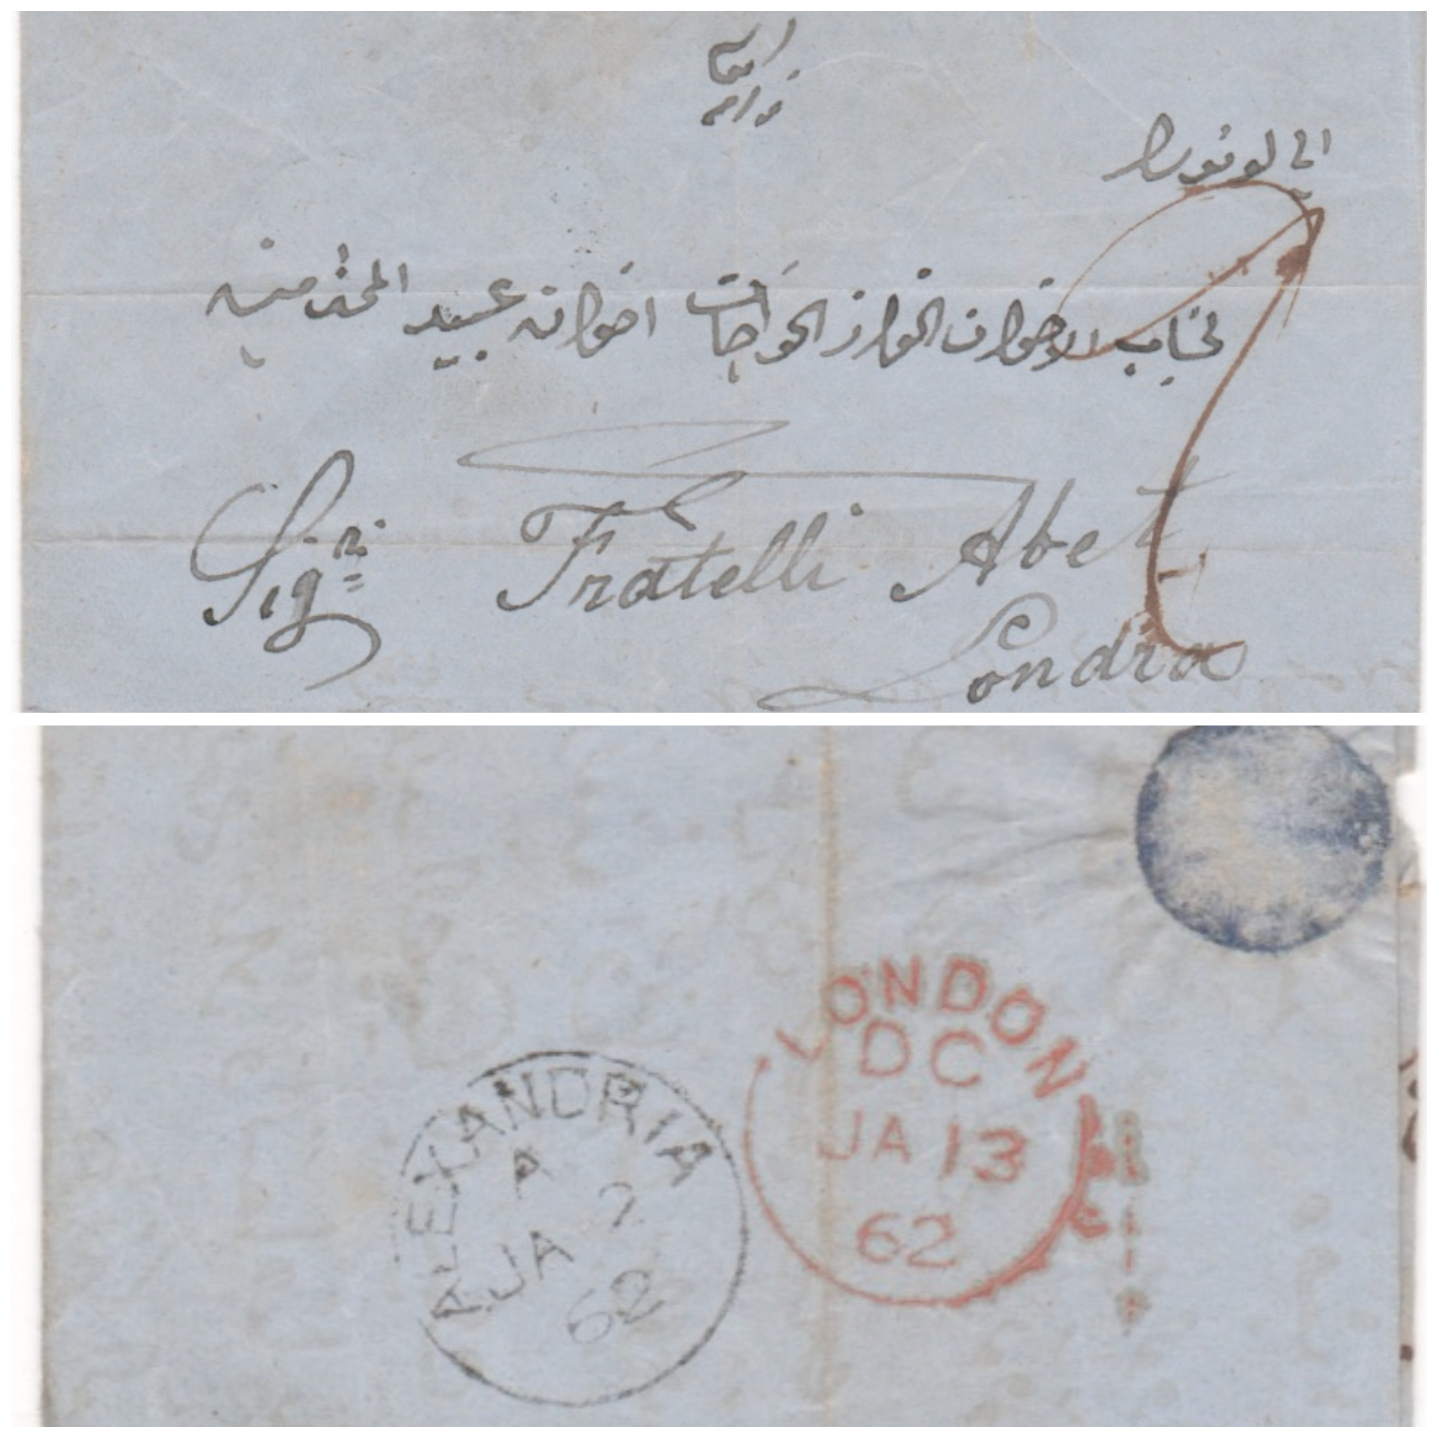 الى لوندرا
لجناب الاخوان العزاز الخواجات اخوان عبيد المحترمين
Sigri Fratelli Abet
Londra
LONDON
DC
JA 13
62
ALEXANDRIA
A
JA 2
62